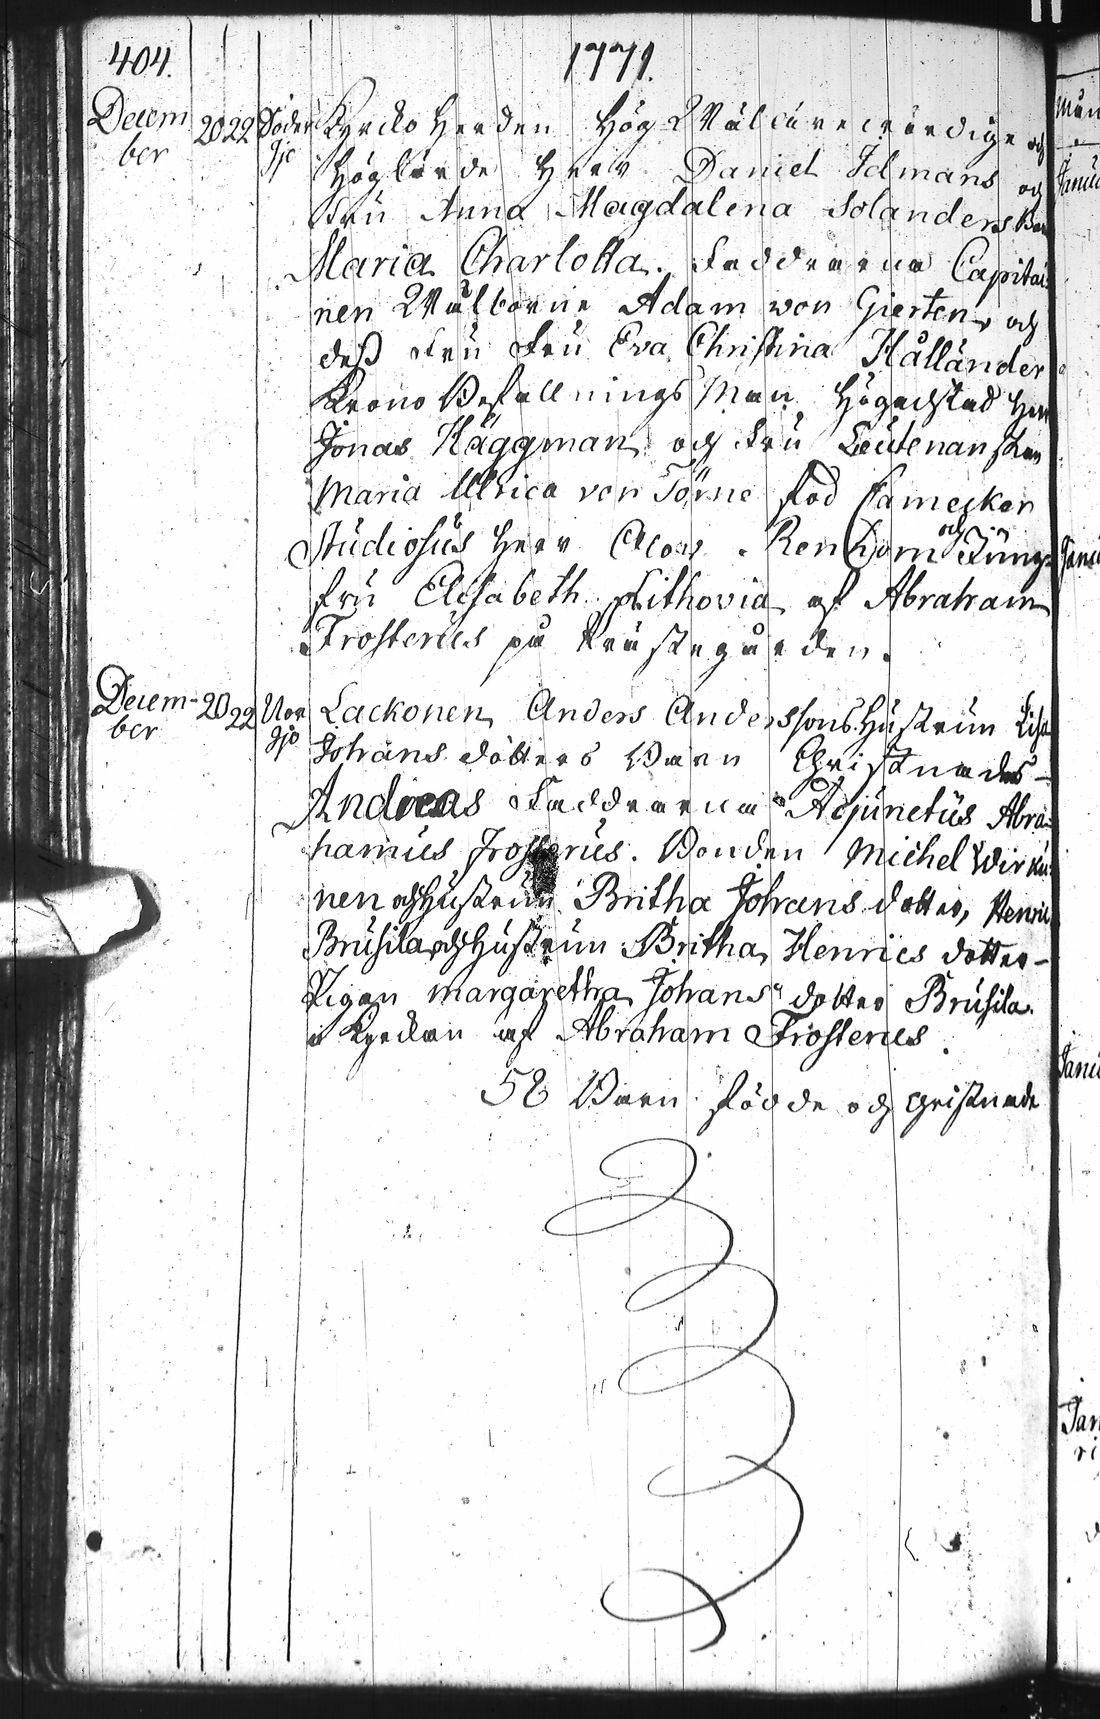 404. 1771.
Decem
ber
20 22 Söder
sjö
Kyrcko Herden Hög Wälärewördige och
Höglärde Herr Daniel Idmans og
Fru Anna Magdalena Solanders Barn
Maria Charlotta. Faddrarna Capitai
nen Wälborne Adam von Gierten, och
dess Fru Fru Eva Christina Hålländer
Krono Befallnings Man Högachtad Herr
Jonas Häggman och Fru Leutenanskan
Maria Ulrica von Törne född
Studiosus Herr Olow Renhorn och Jung-
fru Elisabeth Lithovia af Abraham
Frosterus på Prästegården.
Decem-
ber
20 22 Nor
sjö
Lackonen Anders Anderssons Hustrun Lisa
Johans dotters Barn Christnades
Andreas Faddrarna Adjunctus Abra
hamus Frosterus. Bonden Michel Wirku
nen och Hustrun Britha Johans dotter, Henric
Brusila och Hustrun Britha Henrics dotter
Pigan Margaretha Johans dotter Brusila.
i Kyrckan af Abraham Frosterus.
58 Barn födde och christnade
Janu
Janu
Janu
Jan